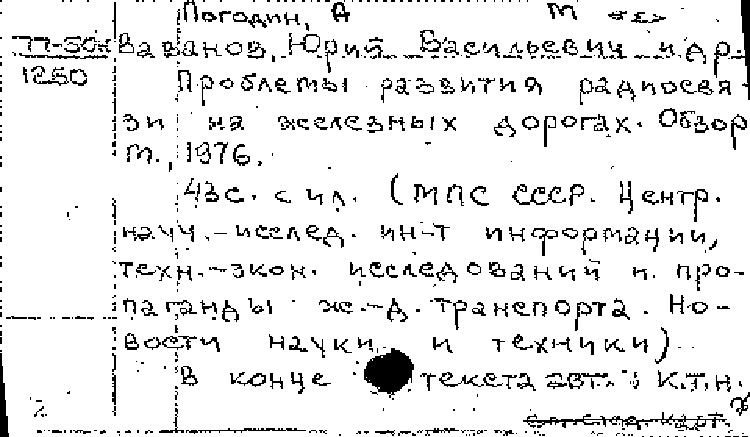 Погодин, А М
77-50
Ваванов, Юрий Васильевич и др.
1250
Проблемы развития радиосвя-
зи на железных дорогах. Обзор
М., 1976.
43с. с ил. (МПС СССР. Центр.
науч.-исслед. ин-т информации,
техн.-экон. исследований и про-
паганды ж.-д. транспорта. Но-
вости науки и техники)
В конце текста авт.: к.т.н.
2 см. след. карт.